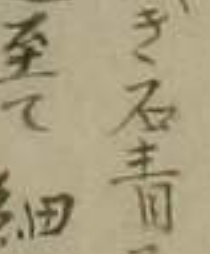 き石青
至て 細